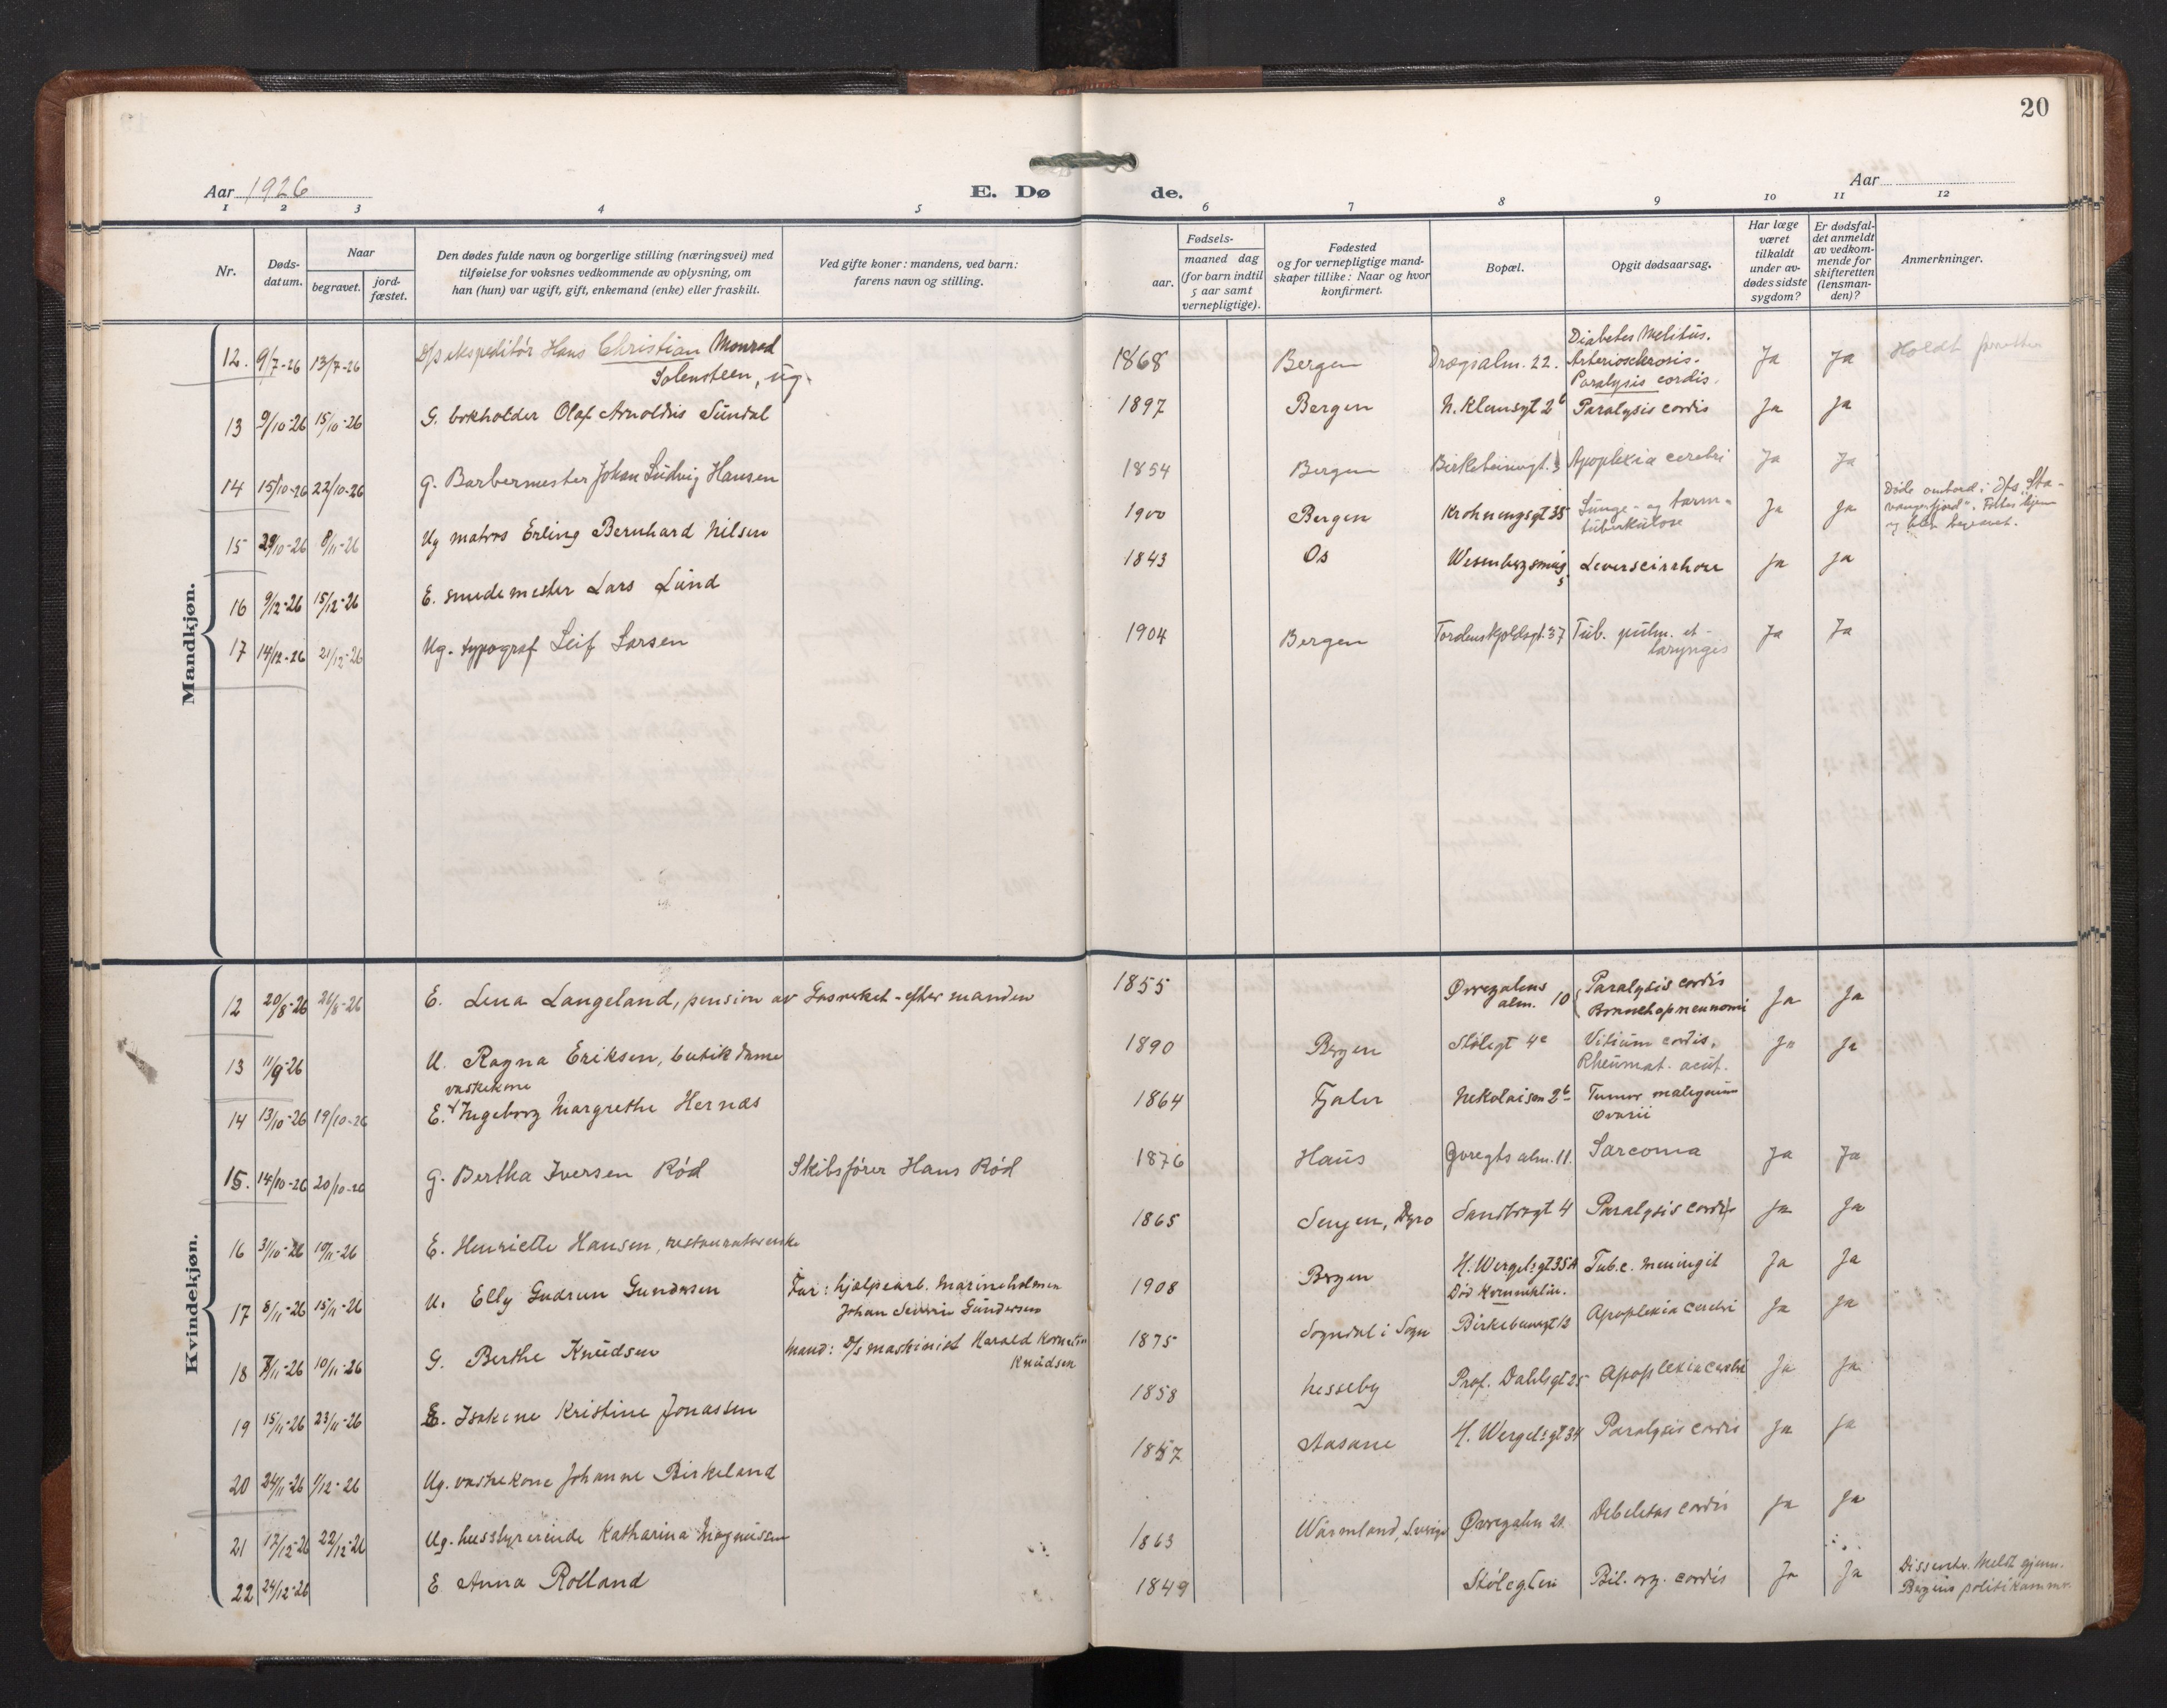 20
Aar 1926
E. Dø
de.
Aar
1 2 3 4 5 6 7 8 9 10 11 12
Nr.
Døds-
datum.
Naar
begravet.
jord-
fæstet.
Den dødes fulde navn og borgerlige stilling (næringsvei) med
tilføielse for voksnes vedkommende av oplysning, om
han (hun) var ugift, gift, enkemand (enke) eller fraskilt.
Ved gifte koner: mandens, ved barn:
farens navn og stilling.
Fødsels-
aar.
maaned dag
(for barn indtil
5 aar samt
vernepligtige).
Fødested
og for vernepligtige mand-
skaper tillike: Naar og hvor
konfirmert.
Bopæl.
Opgit dødsaarsag.
Har læge
været
tilkaldt
under av-
dødes sidste
sygdom?
Er dødsfal-
det anmeldt
av vedkom-
mende for
skifteretten
(lensman-
den)?
Anmerkninger.
Mandkjøn.
12. 9/7-26 13/7-26 D/s ekspeditør Hans Christian Monrad
Solensteen, ug. 1868 Bergen Drægsalm. 22. Diabetes Melitus.
Arteriosclerosis.
Paralysis cordis. Ja Ja Holdt
13 9/10-26 15/10-26 G. bokholder Olaf Arnoldus Sundal 1897 Bergen N. Klausgt 2b Paralysis cordis Ja Ja
14 15/10-26 22/10-26 G. Barbermester Johan Ludvig Hansen 1854 Bergen Birkebeinergt. 3 Apoplexia cerebri Ja Ja
15 29/10-26 8/11-26 Ug matros Erling Bernhard Nilsen 1900 Bergen Krohnengsgt 35 Lunge- og tarm-
tuberkulose Ja Ja Døde ombord i D/s "Sta-
vangerfjord". Føltes hjem
og blev begravet.
16 9/12-26 15/12-26 E. smedemester Lars Lund 1843 Os Wesenbergsmug 5 Levercirrhose Ja Ja
17 14/12-26 21/12-26 Ug. typograf Leif Larsen 1904 Bergen Tordenskjoldsgt. 37 Tub. pulm. et
laryngis Ja Ja
Kvindekjøn.
12 20/8-26 26/8-26 E. Lena Langeland, pension av Gasverket efter manden 1855 Øvregatens
alm. 10 Paralysis cordis
Bronchopneunomi Ja Ja
13 11/9-26 U. Ragna Eriksen, butikdame 1890 Bergen Stølegt 4c Vitium cordis,
Rheumat. acut. Ja Ja
vaskekone
14 13/10-26 19/10-26 E. Ingeborg Margrethe Hernæs 1864 Fjaler Nekolaism 2b Tumor malignum
Ovarii
15. 14/10-26 20/10-26 G. Bertha Iversen Rød Skibsfører Hans Rød 1876 Haus Øvregts alm. 11. Sarcoma Ja Ja
16 31/10-26 10/11-26 E. Henriette Hansen, restauratørenke 1865 Senjen, Dyrø Sandbrogt 4 Paralysis cordis Ja Ja
17 8/11-26 15/11-26 U. Elly Gudrun Gundersen Far: hjælpearb. Marineholmen
Johan Severin Gundersen 1908 Bergen H. Wergelsgt 35A
Død Kommuneklin. Tub.c. meningit Ja Ja
18 7/11-26 10/11-26 G. Berthe Knudsen Mand: D/s maskinist Harald Kornelius
Knudsen 1875 Sogndal i Sogn Birkebeinergt 13 Apoplexia cerebri Ja Ja
19 15/11-26 23/11-26 E. Isakine Kristine Jonassen 1858 Nesseby Prof. Dahlsgt 25 Apoplexia cerebri Ja Ja
20 24/11-26 1/12-26 Ug. vaskekone Johanne Birkeland 1857 Aasane H. Wergelsgt 34 Paralysis cordis Ja Ja
21 17/12-26 22/12-26 Ug. husstyrerinde Katharina Magnussen 1863 Wärmland, Sverige Øvregaten 21 Debeletas cordis Ja Ja
22 24/12-26 E Anna Rolland 1849 Stølegten Bil. org. cordis Ja Ja Dissenter. Meldt gjenn.
Bergens politikammer